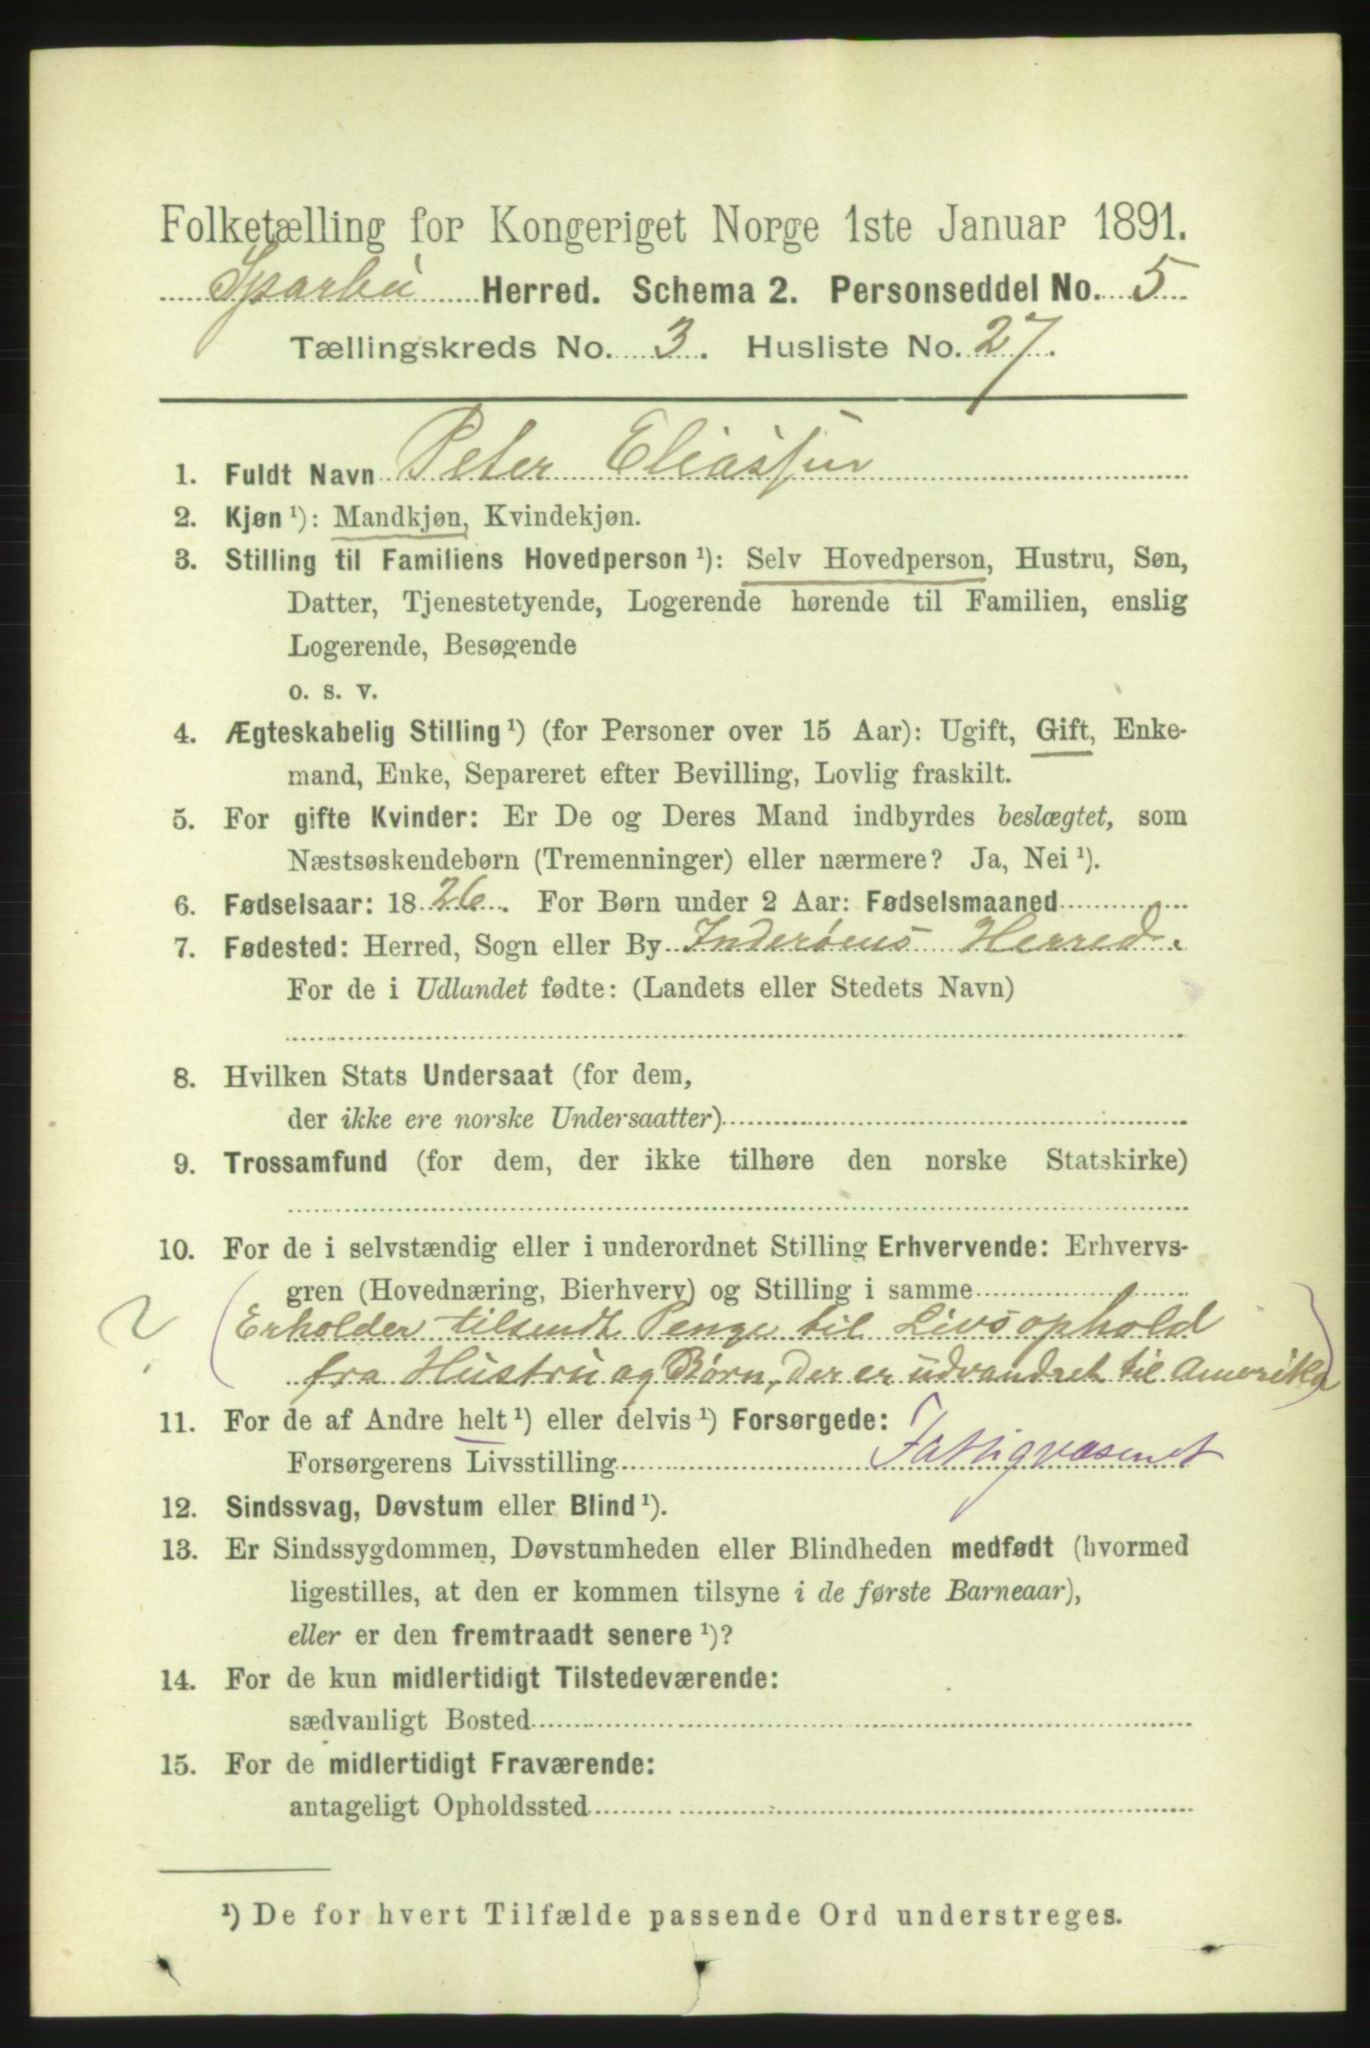 Folketælling for Kongeriget Norge 1ste Januar 1891.
Sparbu Herred. Schema 2. Personseddel No. 5
Tællingskreds No. 3. Husliste No. 27.
1. Fuldt Navn Peter Eliassen
2. Kjøn ¹): Mandkjøn, Kvindekjøn.
3. Stilling til Familiens Hovedperson ¹): Selv Hovedperson, Hustru, Søn,
Datter, Tjenestetyende, Logerende hørende til Familien, enslig
Logerende, Besøgende
o. s. v.
4. Ægteskabelig Stilling ¹) (for Personer over 15 Aar): Ugift, Gift, Enke-
mand, Enke, Separeret efter Bevilling, Lovlig fraskilt.
5. For gifte Kvinder: Er De og Deres Mand indbyrdes beslægtet, som
Næstsøskendebørn (Tremenninger) eller nærmere? Ja, Nei ¹).
6. Fødselsaar: 1826. For Børn under 2 Aar: Fødselsmaaned
7. Fødested: Herred, Sogn eller By Inderøens Herred.
For de i Udlandet fødte: (Landets eller Stedets Navn)
8. Hvilken Stats Undersaat (for dem,
der ikke ere norske Undersaatter)
9. Trossamfund (for dem, der ikke tilhøre den norske Statskirke)
10. For de i selvstændig eller i underordnet Stilling Erhvervende: Erhvervs-
gren (Hovednæring, Bierhverv) og Stilling i samme
? (Erholder tilsendt Penge til Livsophold
fra Hustru og Børn, der er udvandret til Amerika)
11. For de af Andre helt ¹) eller delvis ¹) Forsørgede:
Forsørgerens Livsstilling Fattigvæsenet
12. Sindssvag, Døvstum eller Blind ¹).
13. Er Sindssygdommen, Døvstumheden eller Blindheden medfødt (hvormed
ligestilles, at den er kommen tilsyne i de første Barneaar),
eller er den fremtraadt senere ¹)?
14. For de kun midlertidigt Tilstedeværende:
sædvanligt Bosted
15. For de midlertidigt Fraværende:
antageligt Opholdssted
¹) De for hvert Tilfælde passende Ord understreges.